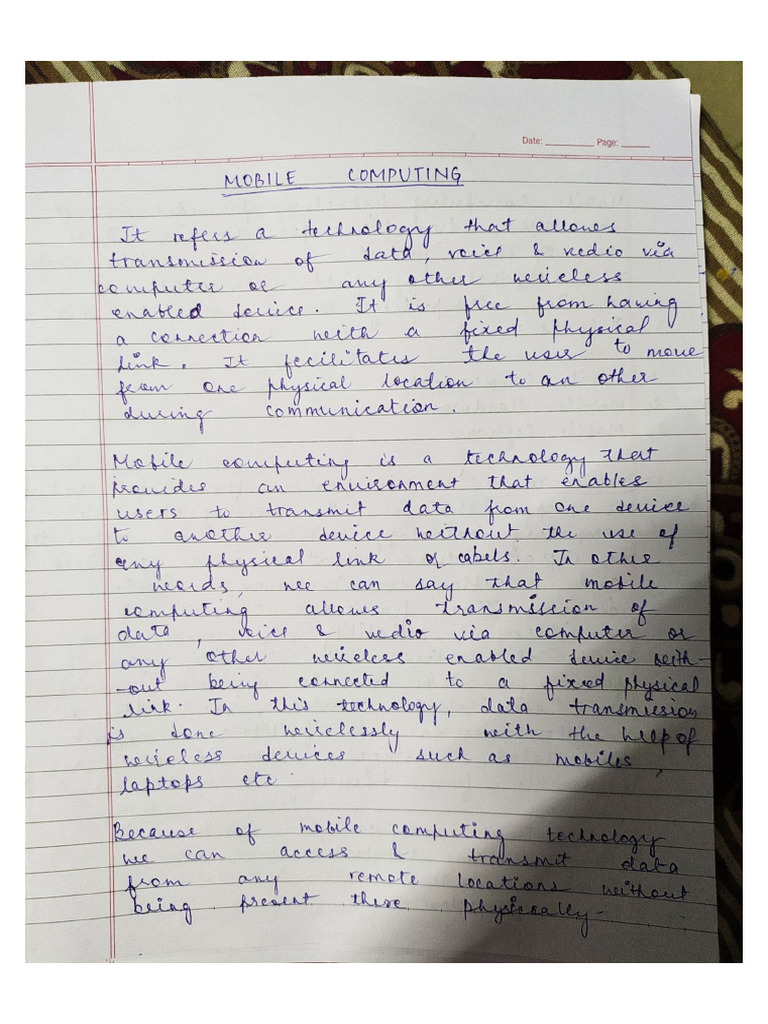 Date: ________ Page: _____
MOBILE COMPUTING
It refers a technology that allows
transmission of data, voice & vedio via
computer or any other wireless
enabled device. It is free from having
a connection with a fixed physical
link. It fecilitates the user to move
from one physical location to an other
during communication.
Mobile computing is a technology that
provides an environment that enables
users to transmit data from one device
to another device without the use of
any physical link or cabels. In other
words, we can say that mobile
computing allows transmission of
data, voice & vedio via computer or
any other wireless enabled device with-
-out being connected to a fixed physical
link. In this technology, data transmission
is done wirelessly with the help of
wireless devices such as mobiles,
laptops etc.
Because of mobile computing technology
we can access & transmit data
from any remote locations without
being present there physically.